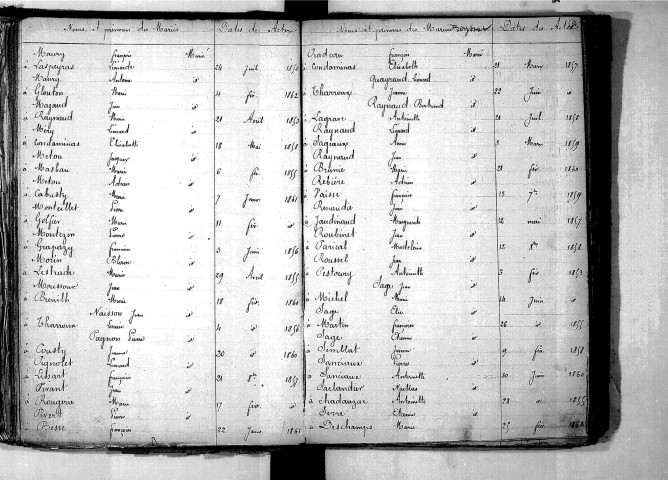 Noms et prénoms des Mariés Dates des Actes
Maury françois Marié
à Laspeyras 24 Juil
Maury Antoine d
à Glouton Marie 4 fév 1862
Magaud Jean d
à Raynaud Marie 21 Avril 1853
Méry Léonard d
à Condaminas Elisabeth 18 Mai 1858
Metou Jacques d
à Masbau Marie 6 fév 1855
Metou Adrien d
à Cabusty Marie 7 Janv 1861
Monteillet Pierre d
à Golfier Marie 11 fév d
Montezin Pierre d
à Grapazy françoise 3 Juin 1856
Morin Blaise d
à Lestrade Marie 29 Avril 1855
Moussour Jean d
à Benith Marie 18 fév 1861
Naisson Jean d
à Charroux Louise 4 d 1856
Pagnon Pierre d
à Cousty Jeanne 20 d 1860
Pignolet Léonard d
à Lissart françoise 21 8bre 1857
Pivant Jean d
à Rougerie Marie 17 fév d
Pivert Pierre d
à Besse françoise 22 Janv 1861
Noms et prénoms des Mariés Dates des Actes
Pradeau françois Marié
à Condaminas Elisabeth 28 Mars 1857
Quayraud Léonard d
à Charroux Jeanne 22 Juin d
Raynaud Bertrand d
à Lagrave Antoinette 21 Juil 1858
Raynaud Léonard d
à Saqueaux Anne 3 Mars 1859
Raynaud Jean d
à Brunie Marie 21 fév 1860
Rebière Adrien d
à Vaisse françoise 13 7bre 1859
Renaudie Jean d
à Jaudinaud Marguerite 12 mai 1857
Roubinet Jean d
à Parical Madeleine 12 8bre 1858
Roussel Jean d
à Pestoury Antoinette 3 fév 1853
Sage Jean d
à Michel Marie 14 Juin d
Sage Elie d
à Martin françoise 26 d 1855
Sage Etienne d
à Semblat Jeanne 9 fév 1858
Sanciaux Pierre d
à Sanciaux Antoinette 30 Juin 1860
Sarlandier d
à Chadauzac Antoinette 28 d 1855
Serre Etienne d
à Deschamps Marie 25 fév